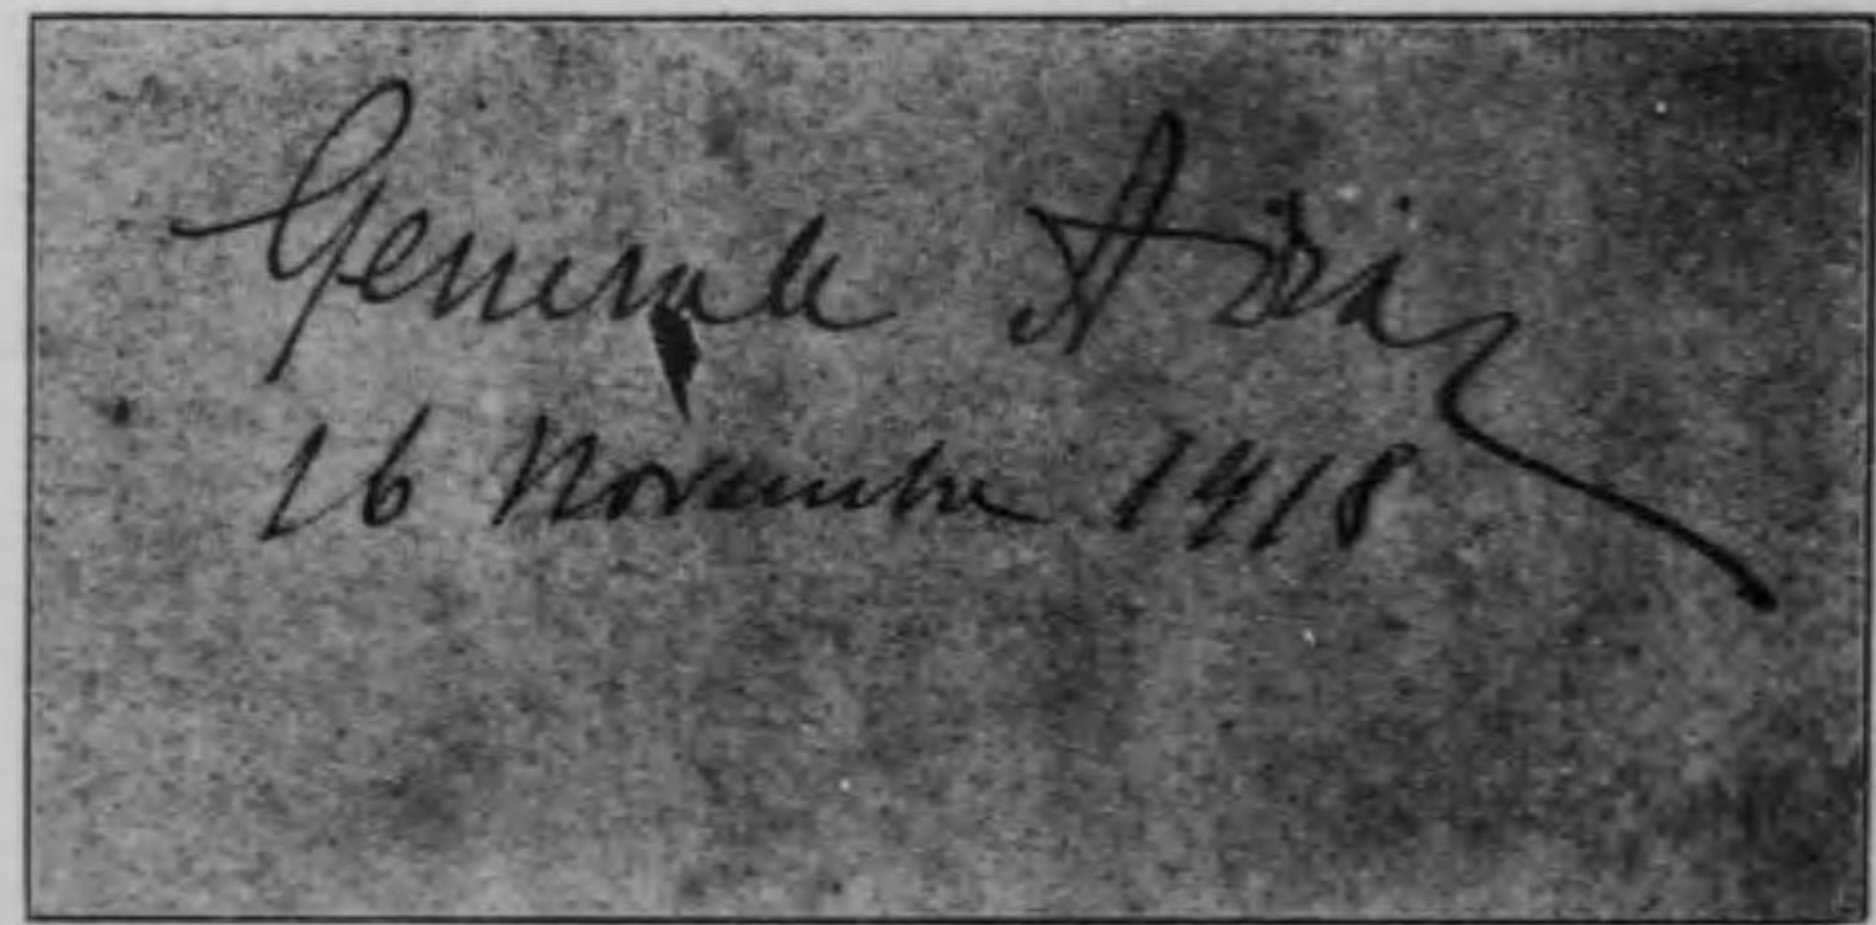 Generale A Diaz
16 Novembre 1918